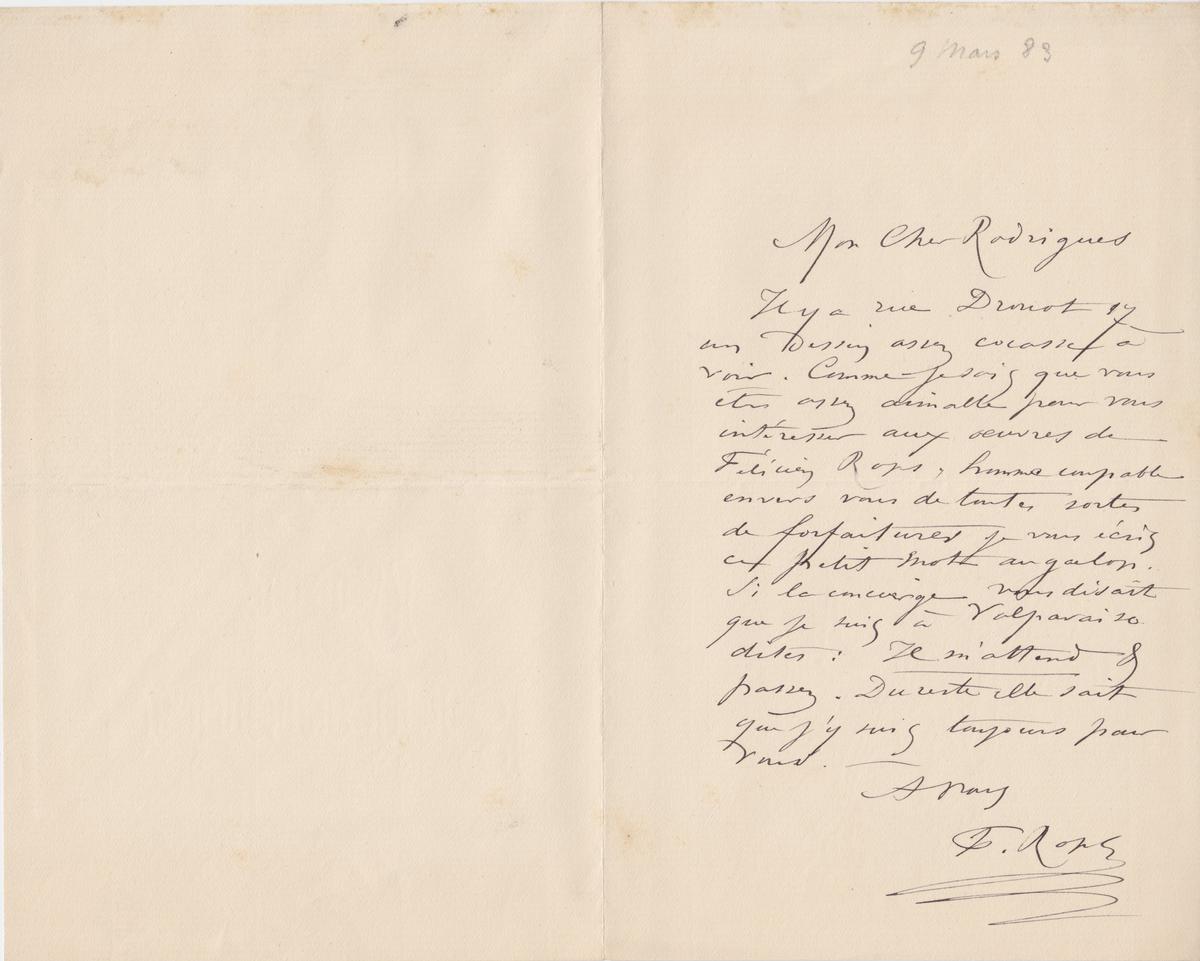 9 Mars 83
Mon Cher Rodrigues
Il y a rue Drouot 17
un Dessin assez cocasse à
voir. Comme je sais que vous
êtes assez aimable pour vous
intéresser aux œuvres de
Félicien Rops, homme coupable
envers vous de toutes sortes
de forfaitures je vous écris
ce petit mot au galop.
Si la concierge vous disait
que je suis à Valparaiso
dites : Il m'attend &
passez. Du reste elle sait
que j'y suis toujours pour
vous. —
A vous
F. Rops